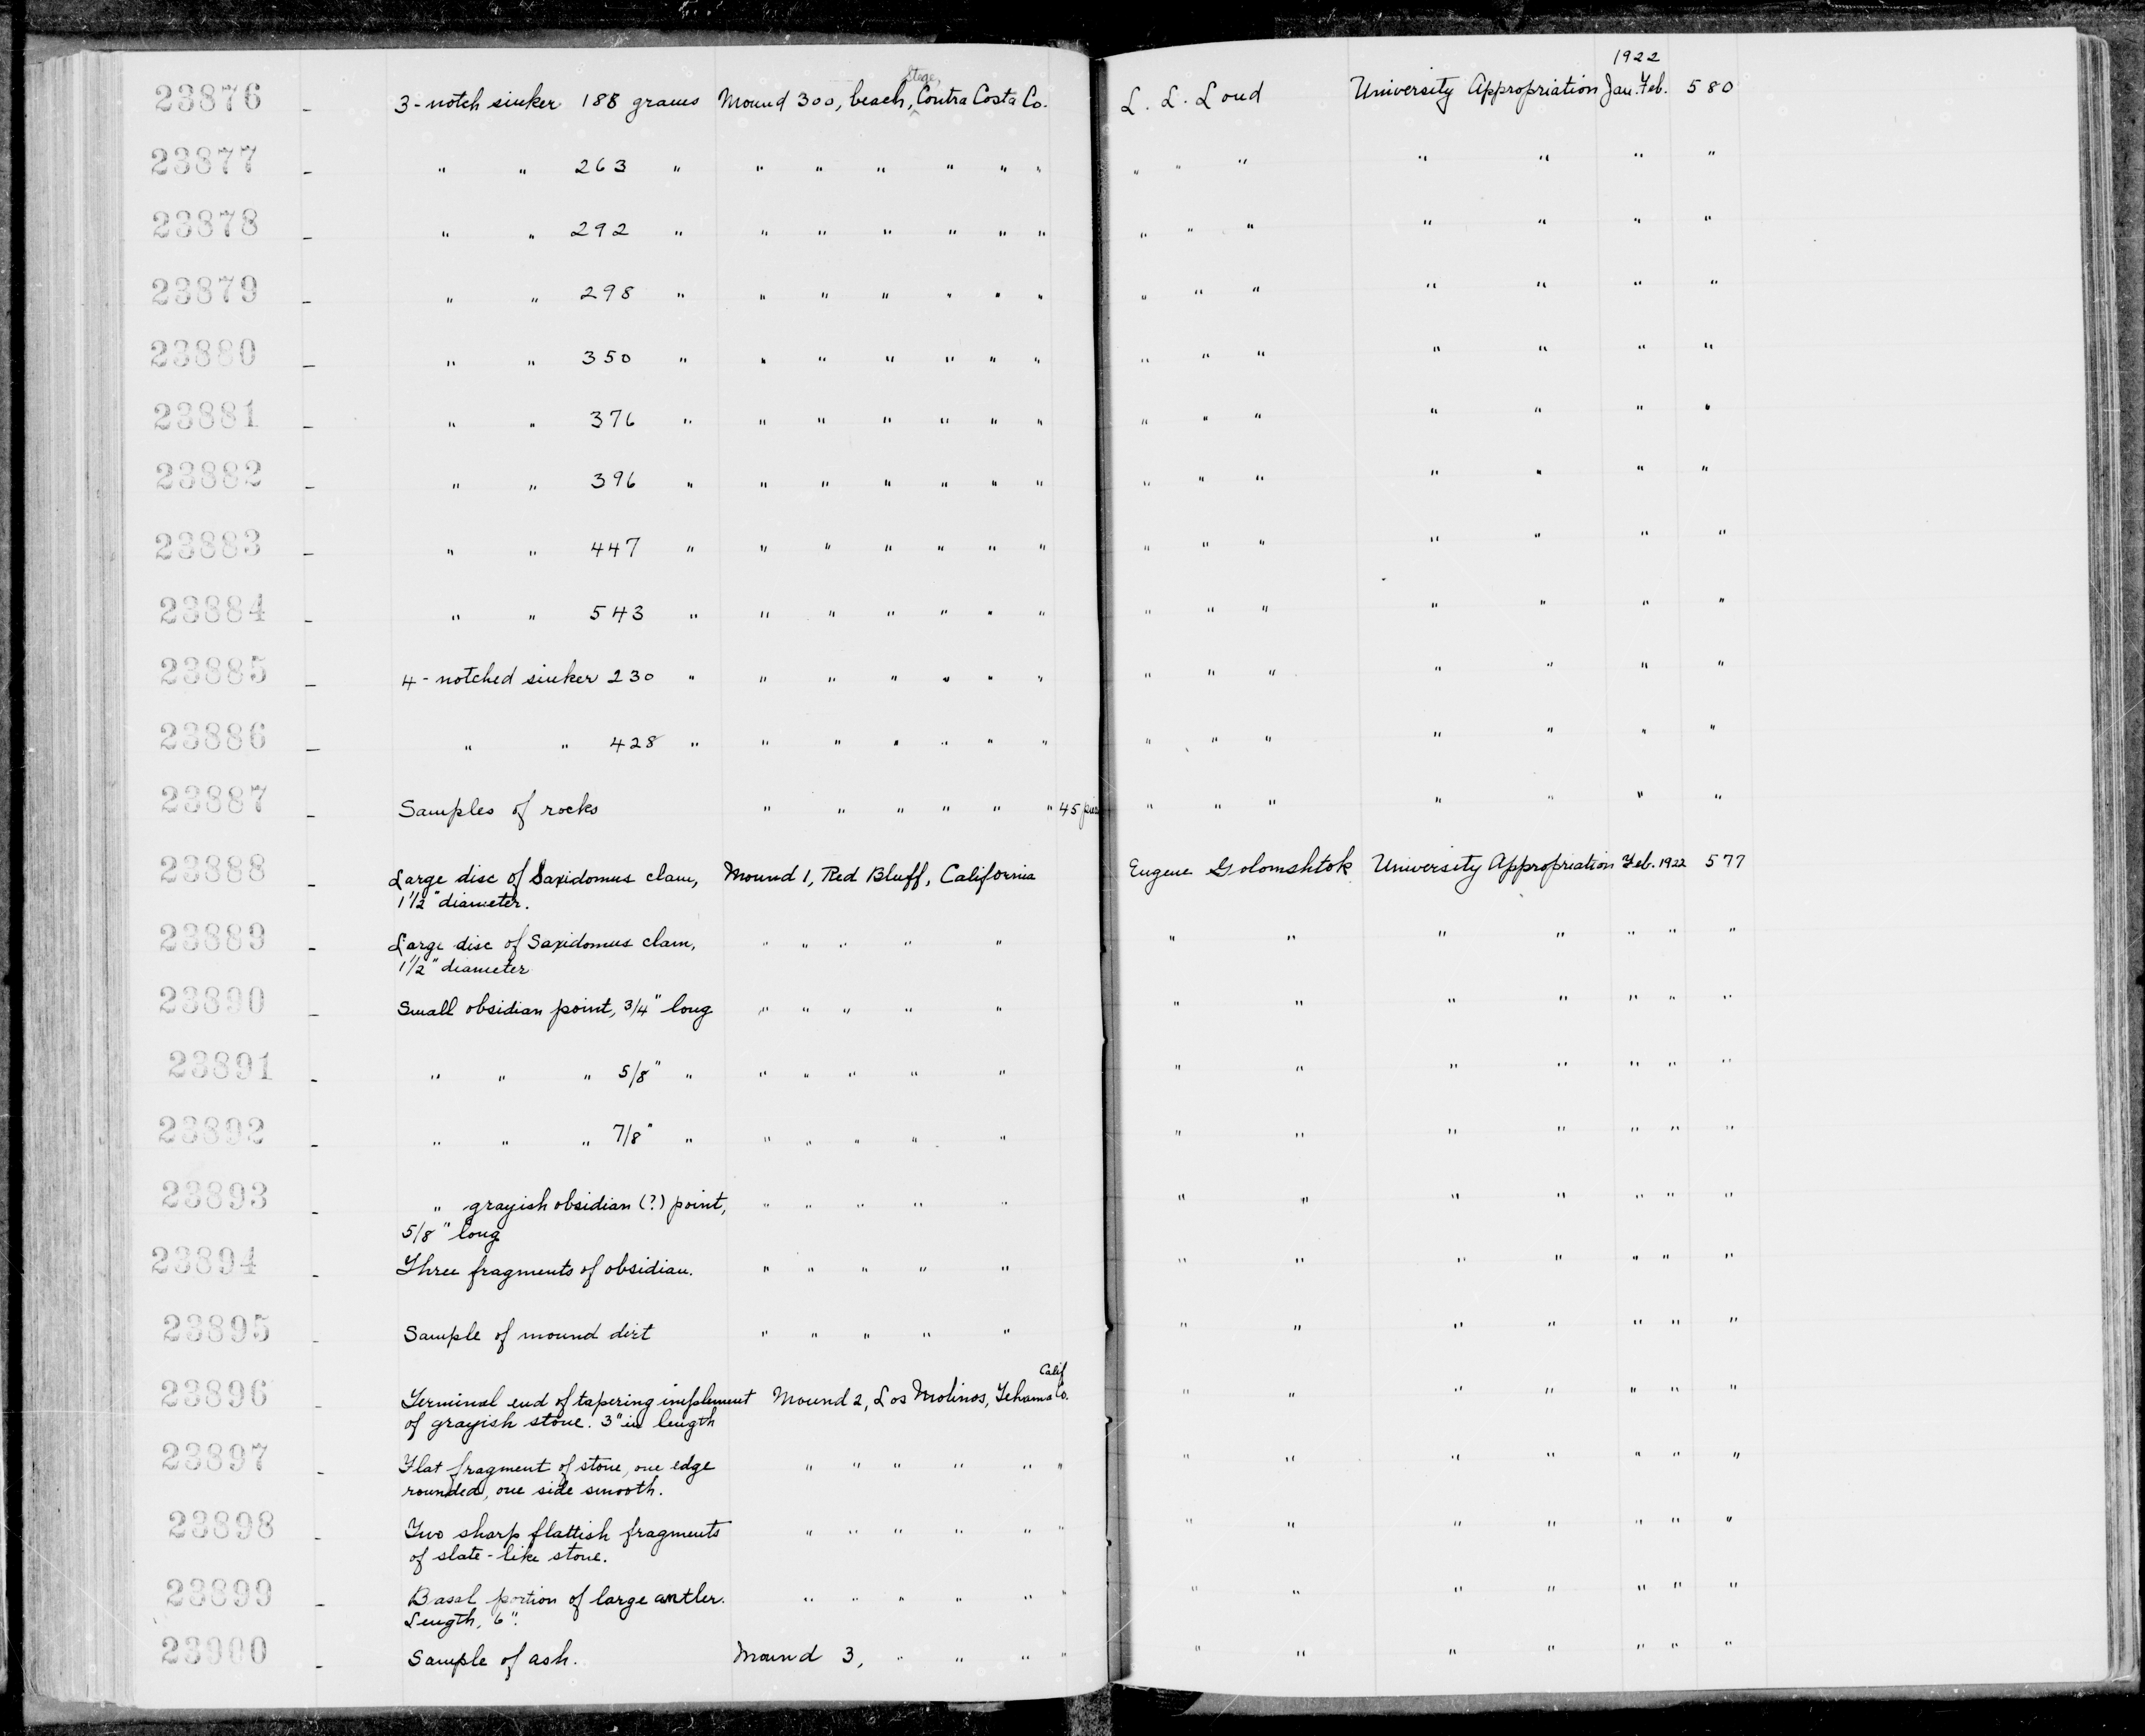 1922
23876 - 3-notch sinker 188 grams Mound 300, beach, Stege, Contra Costa Co. L. L. Loud University Appropriation Jan. Feb. 580
23877 - " " 263 " " " " " " " " " " " " " "
23878 - " " 292 " " " " " " " " " " " " " "
23879 - " " 298 " " " " " " " " " " " " " "
23880 - " " 350 " " " " " " " " " " " " " "
23881 - " " 376 " " " " " " " " " " " " " "
23882 - " " 396 " " " " " " " " " " " " " "
23883 - " " 447 " " " " " " " " " " " " " "
23884 - " " 543 " " " " " " " " " " " " " "
23885 - 4-notched sinker 230 " " " " " " " " " " " " " "
23886 - " " 428 " " " " " " " " " " " " " "
23887 - Samples of rocks " " " " " " 45 " " " " " " "
23888 - Large disc of Saxidomus clam, Mound 1, Red Bluff, California Eugene Golomshtok University Appropriation Feb. 1922 577
1 1/2" diameter.
23889 - Large disc of Saxidomus clam, " " " " " " " " " " " "
1 1/2" diameter
23890 - Small obsidian point, 3/4" long " " " " " " " " " " " "
23891 - " " " 5/8" " " " " " " " " " " " " "
23892 - " " " 7/8" " " " " " " " " " " " " "
23893 - " grayish obsidian (?) point, " " " " " " " " " " " "
5/8" long
23894 - Three fragments of obsidian. " " " " " " " " " " " "
23895 - Sample of mound dirt " " " " " " " " " " " "
Calif
23896 - Terminal end of tapering implement Mound 2, Los Molinos, Tehama Co. " " " " " " "
of grayish stone. 3" in length
23897 - Flat fragment of stone, one edge " " " " " " " " " " " " "
rounded, one side smooth.
23898 - Two sharp flattish fragments " " " " " " " " " " " " "
of slate-like stone.
23899 - Basal portion of large antler. " " " " " " " " " " " " "
Length, 6".
23900 - Sample of ash. Mound 3, " " " " " " " " " " "